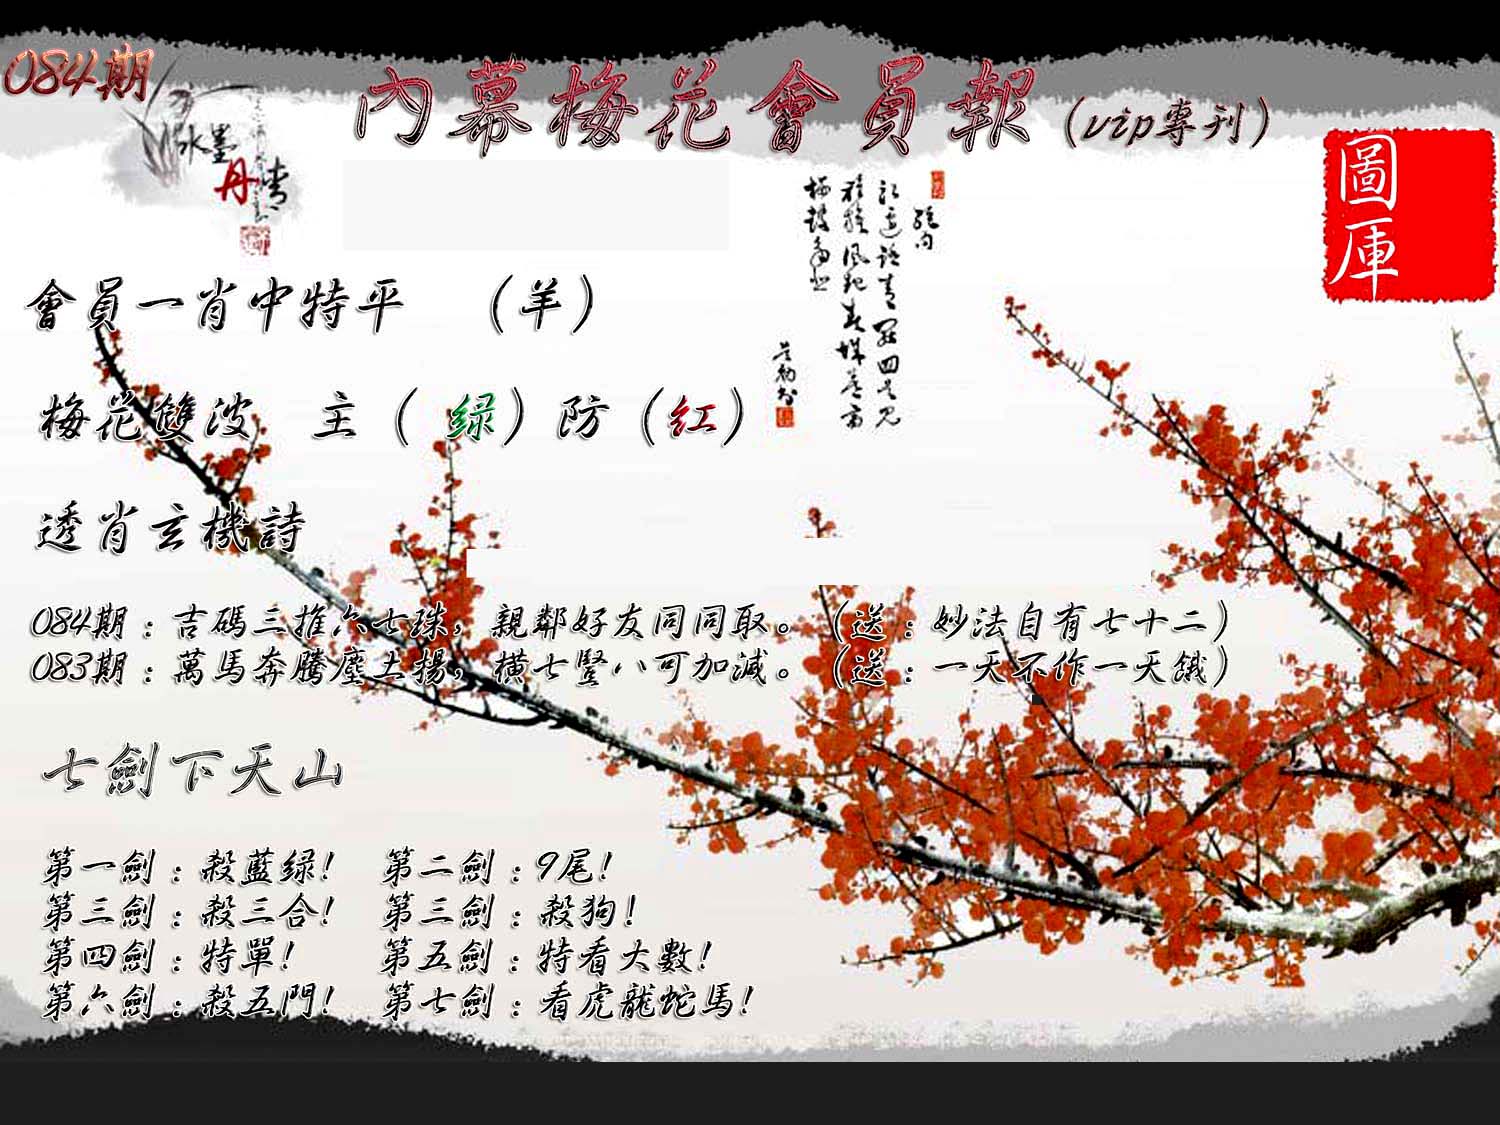 084期
內幕梅花會員報(vip專刊)
水墨
丹青
圖庫
會員一肖中特平 (羊)
梅花雙波 主(绿)防(红)
透肖玄機詩
084期:吉碼三推六七珠,親鄰好友同同取。(送:妙法自有七十二)
083期:萬馬奔騰塵土揚,橫七豎八可加減。(送:一天不作一天餓)
七劍下天山
第一劍:殺藍绿! 第二劍:9尾!
第三劍:殺三合! 第三劍:殺狗!
第四劍:特單! 第五劍:特看大數!
第六劍:殺五門! 第七劍:看虎龍蛇馬!